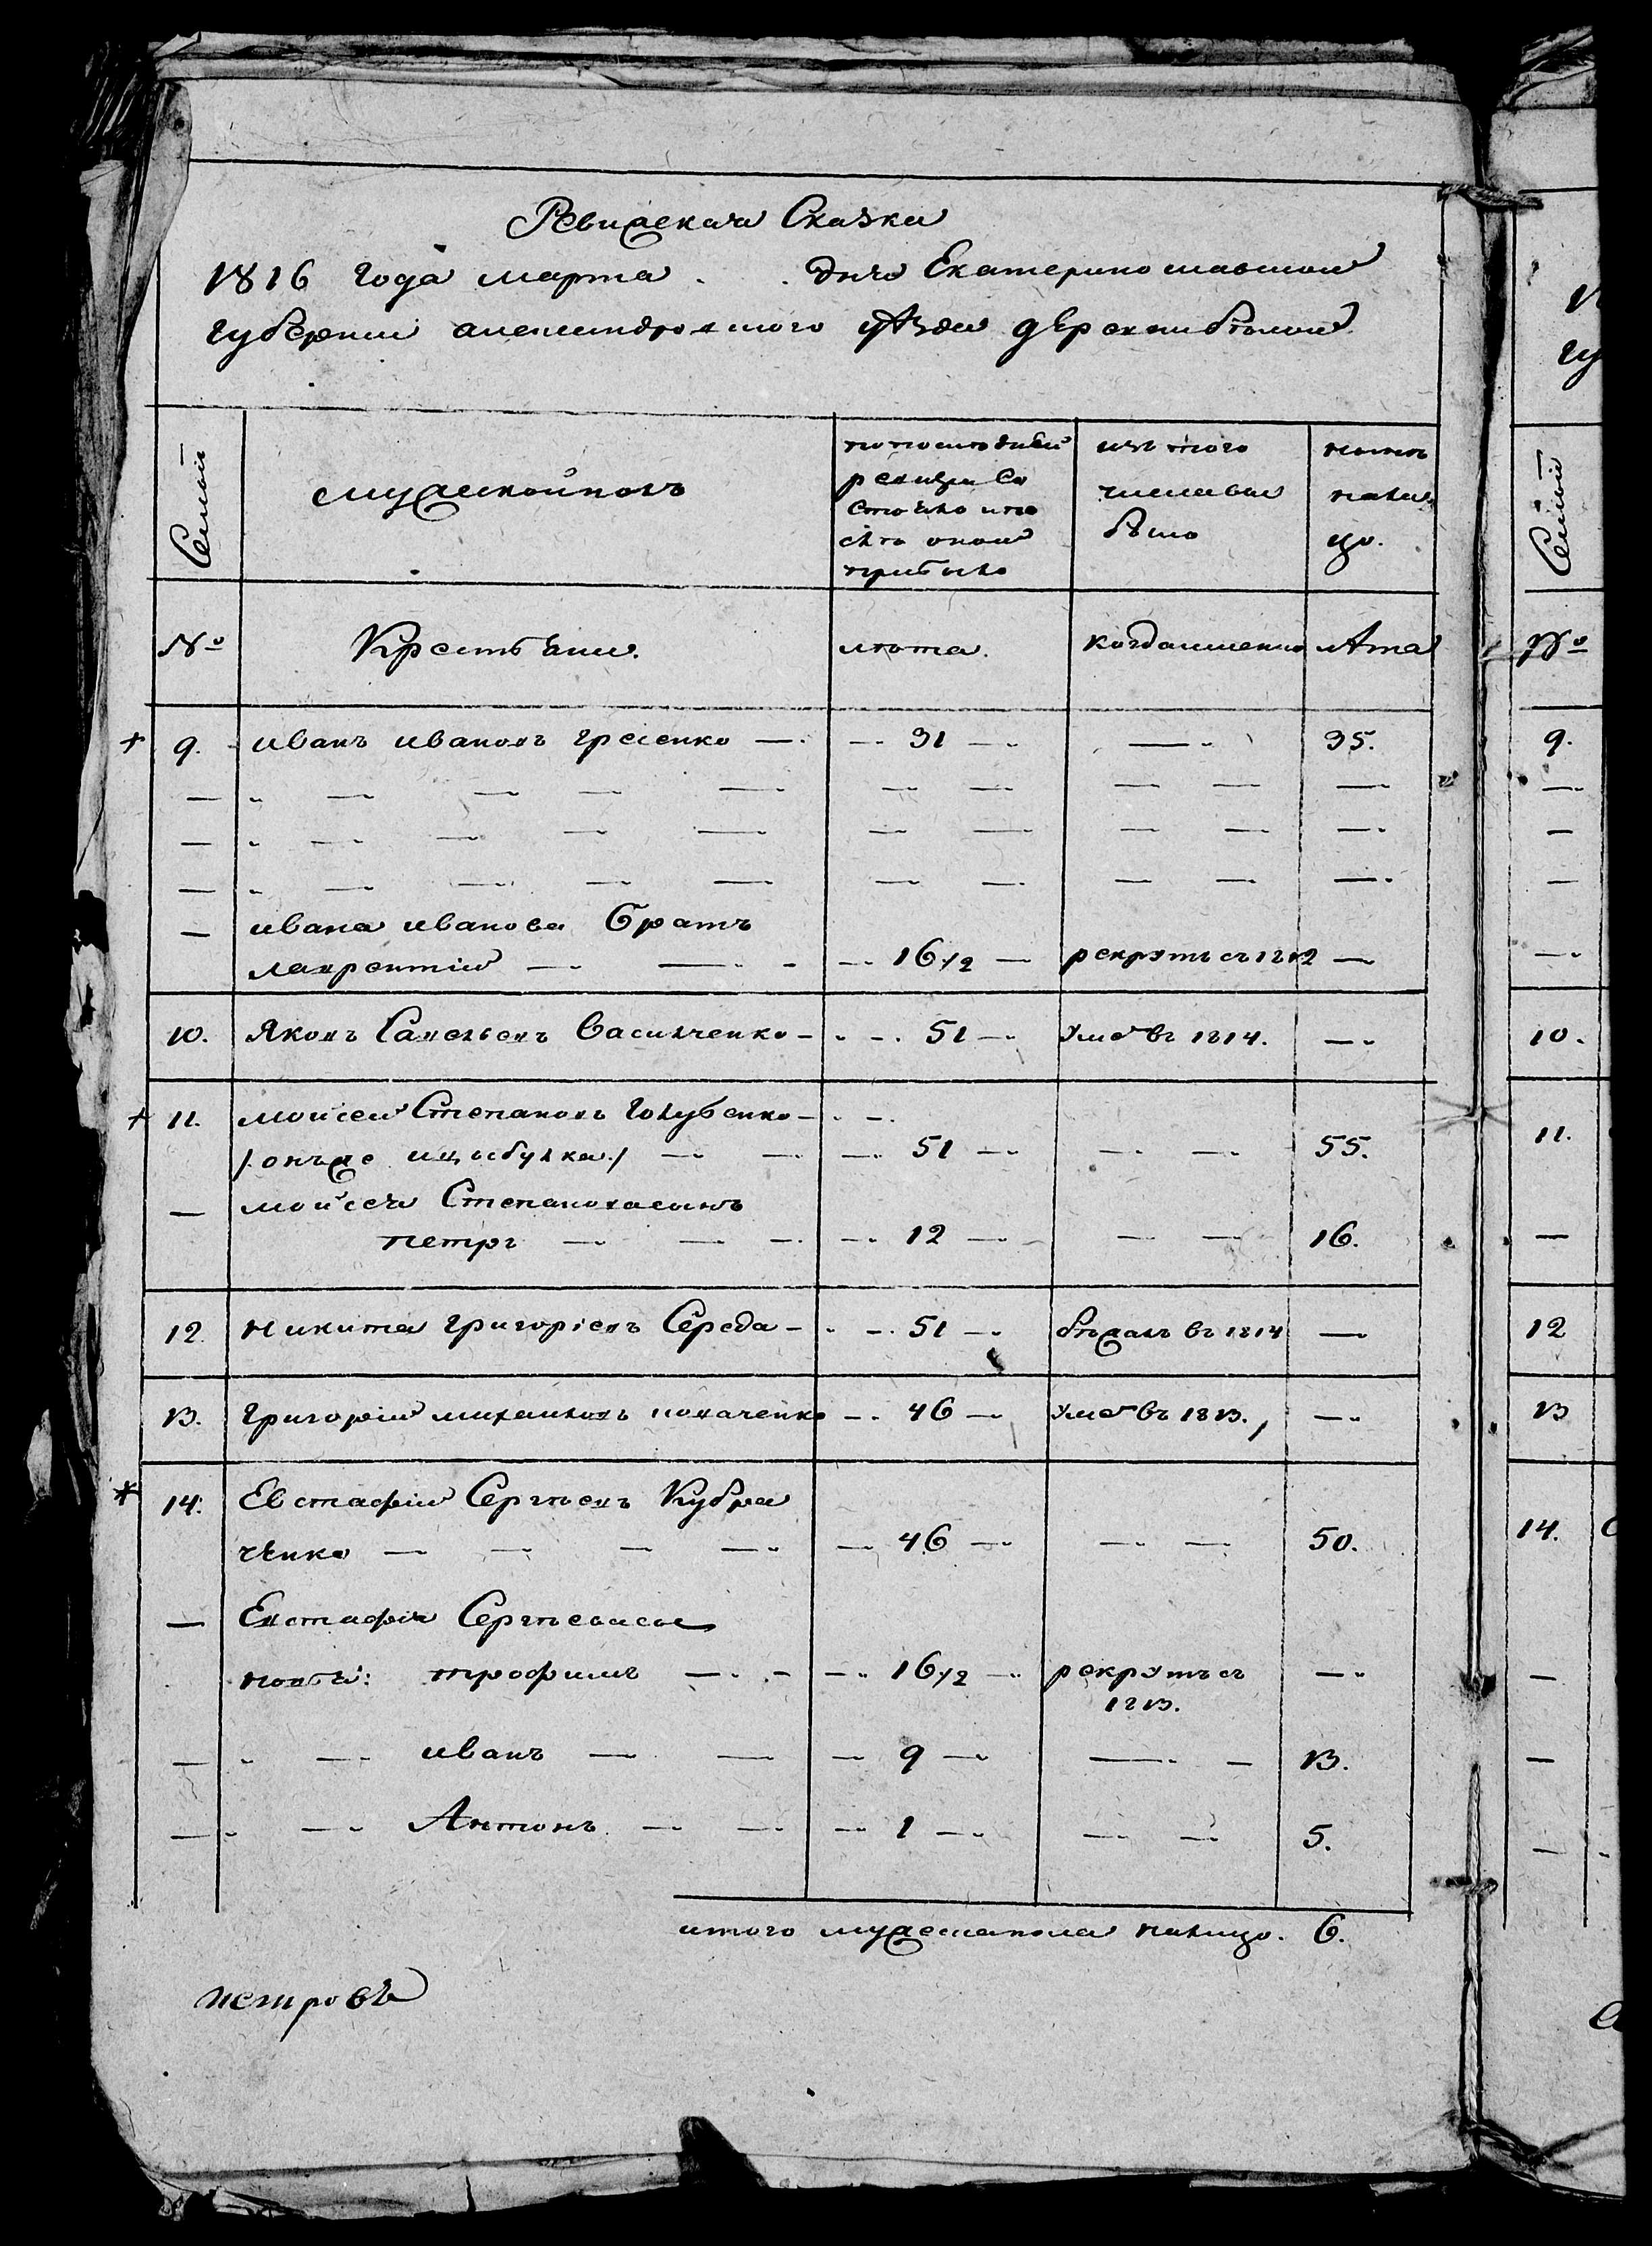 Ревизская Сказка
1816 года марта . . дня Екатеринославской
губернии александровского уѣзда
Семьи
мужеской полъ
по последней
ревизіи Со
стояло и по
слѣ оной
прибыло
изъ того
числа вы
было
нынѣ
на ли
цо.
№
Крестьяни.
лѣта.
когда именно
лѣта
+ 9. иванъ ивановъ — 31 — — 35.
ивана иванова братъ
лаврентій — 16 1/2 — рекрутъ съ 1812 —
10. Яковъ Савельевъ Василченко — 51 — умеръ въ 1814. —
+ 11. мойсей Степановъ Голубенко —
/:онъ же :/ — 51 — — 55.
— мойсея Степанова сынъ
петръ — 12 — — 16.
12. никита григоріевъ Середа — 51 — бѣжалъ въ 1814 —
13. григорій михайловъ — 46 — умеръ въ 1813. —
* 14. Евстафій Сергѣевъ Кубра
ченко — 46 — — 50.
— Евстафія Сергѣева сы
новья: трофимъ — 16 1/2 — рекрутъ съ —
1813.
— иванъ — 9 — — 13.
— Антонъ — 1 — — 5.
итого мужеска пола налицо. 6.
петровъ
Семьи
№
9.
10.
11.
12
13
14.